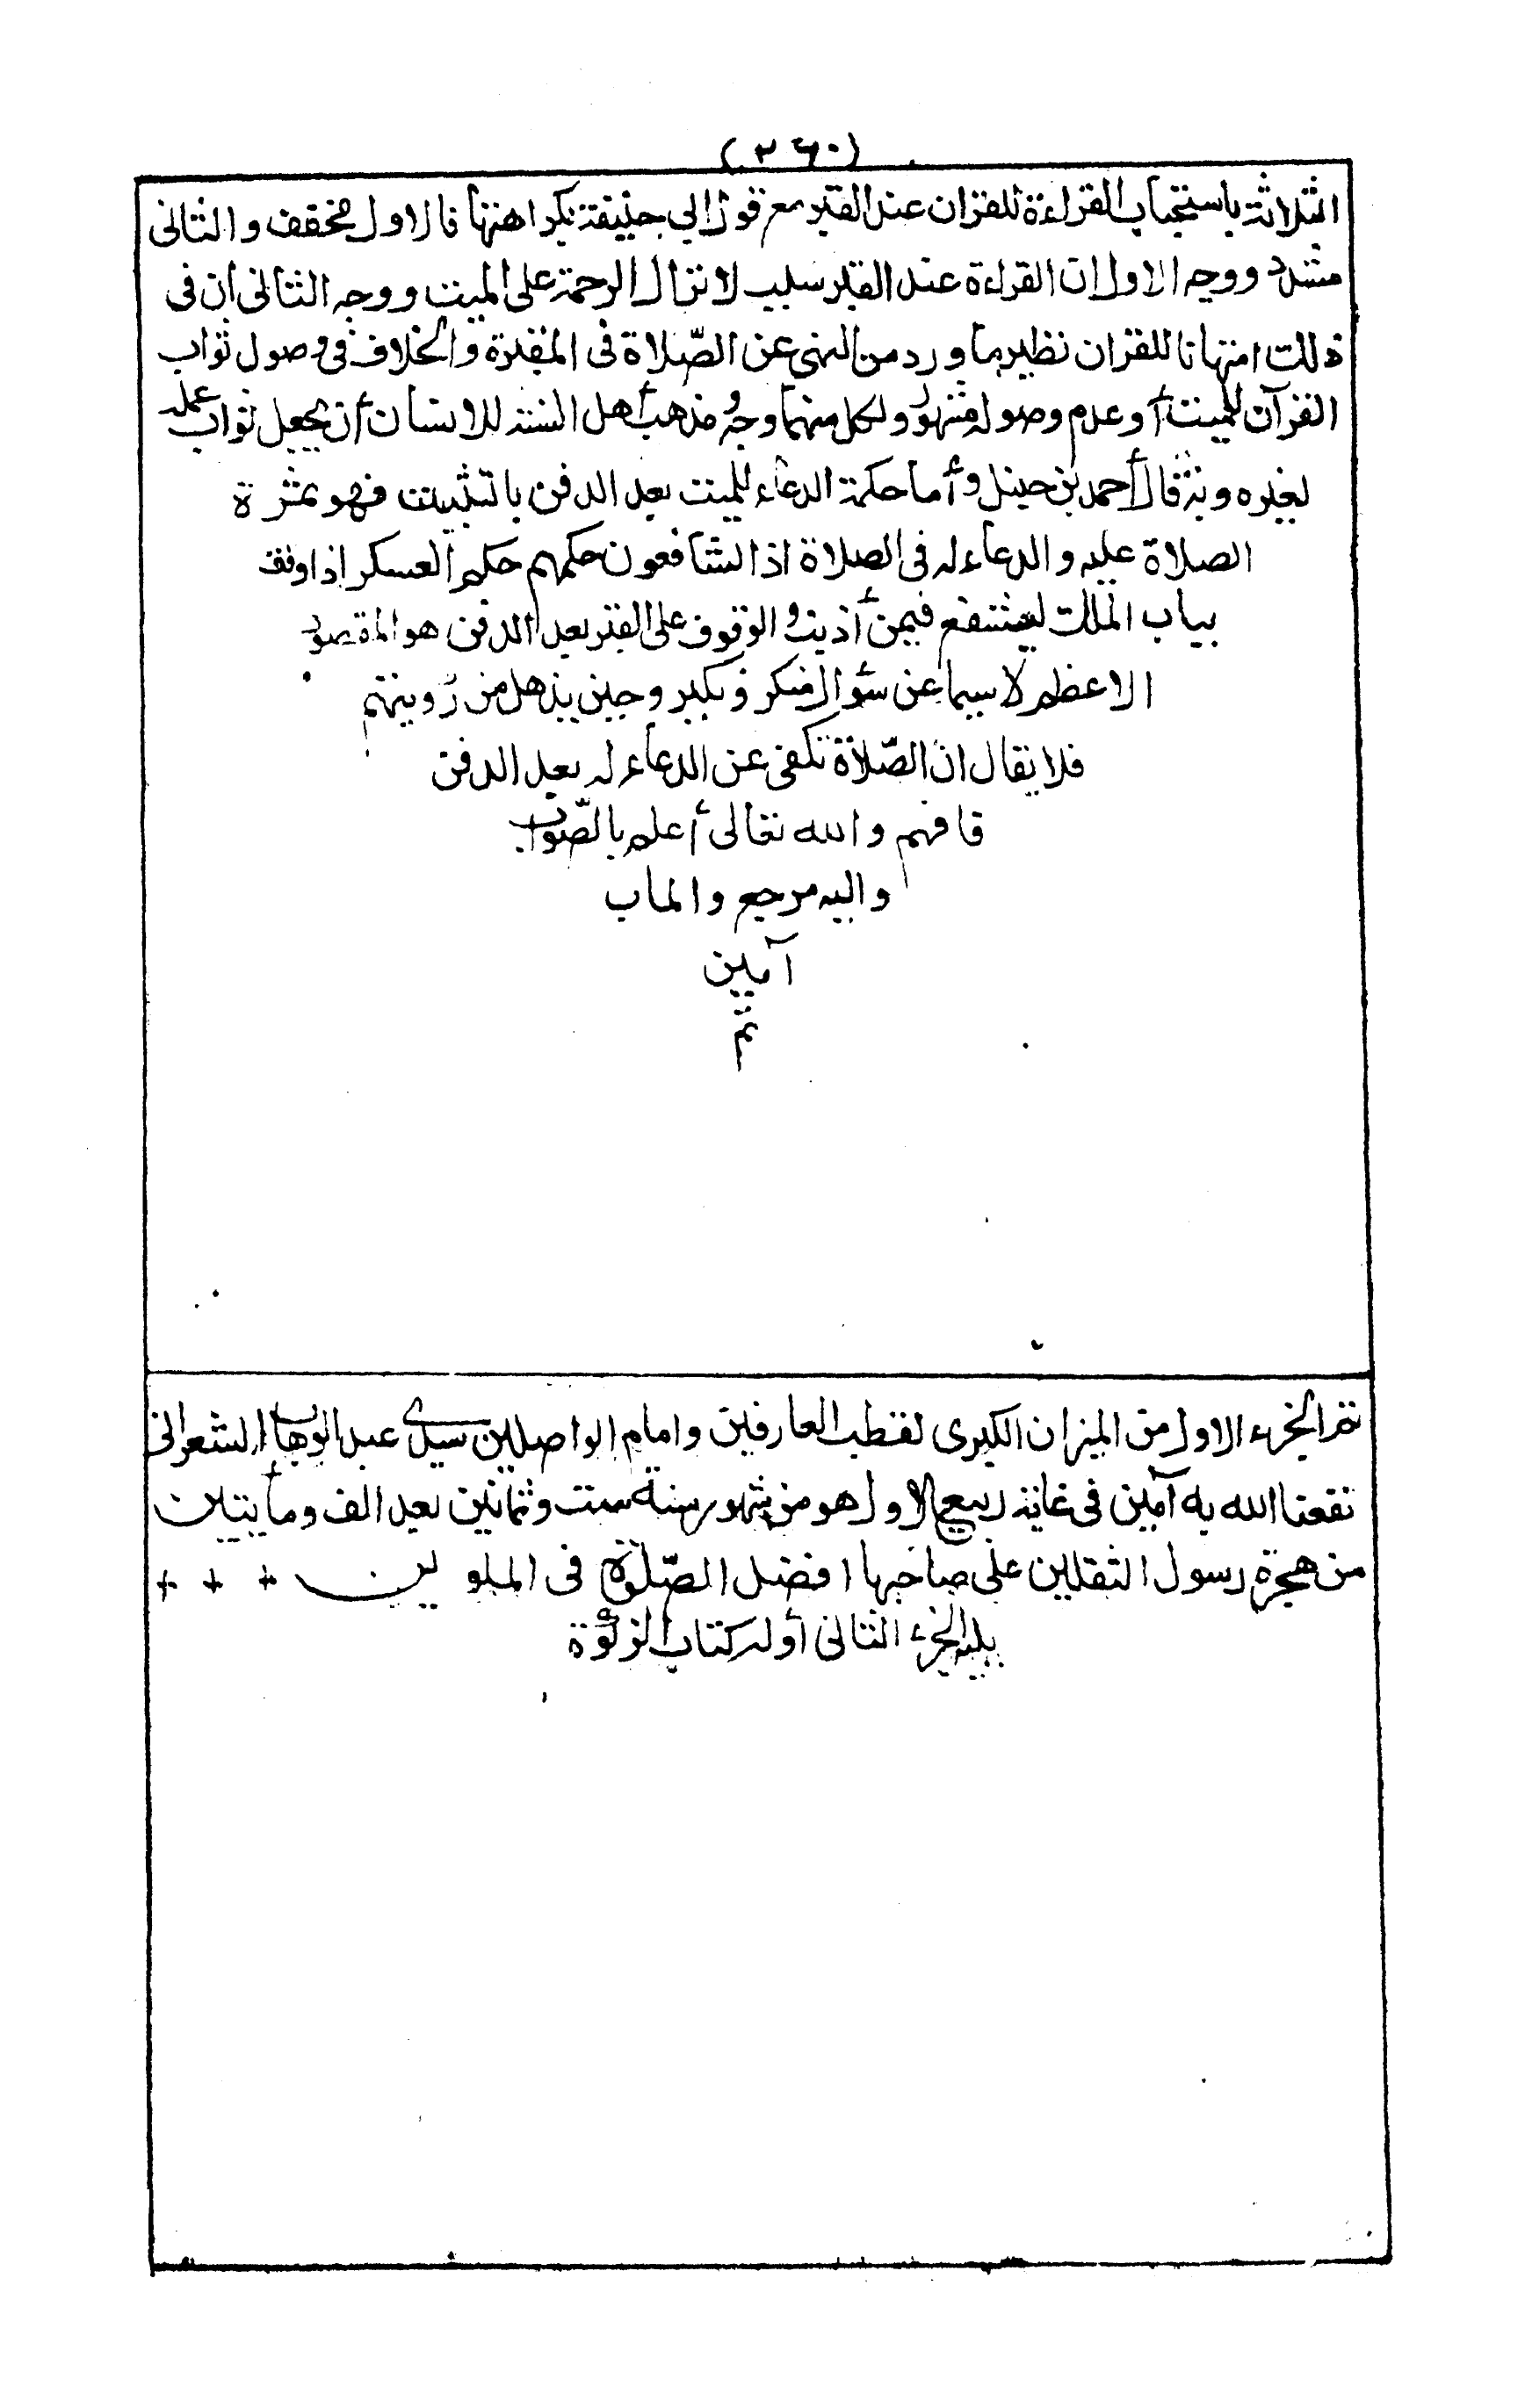 (٢٦٠)
الثلاثة باستحباب القراءة للقران عند القبر مع قول ابي حنيفة بكراهتها فالاول مخفف والثاني
مشدد ووجه الاول ان القراءة عند القبر سبب لانزال الرحمة على الميت ووجه الثاني أن في
ذلك امتهانا للقران نظير ما ورد من النهي عن الصّلاة في المقبرة والخلاف في وصول ثواب
القرآن للميت أو عدم وصوله مشهور ولكل منهما وجه ومذهب أهل السنة للانسان أن يجعل ثواب عمله
لغيره وبه قال أحمد بن حنبل وأما حكمة الدعاء للميت بعد الدفن بالتثبيت فهو ثمرة
الصلاة عليه والدعاء له في الصلاة اذ الشافعون حكمهم حكم العسكر اذا وقف
بباب الملك ليشفع فيمن أذنب والوقوف على القبر بعد الدفن هو المقصود
الاعظم لاسيما عن سؤال منكر ونكير وحين يذهل من رؤيتهم
فلا يقال ان الصّلاة تكفي عن الدعاء له بعد الدفن
فافهم والله تعالى أعلم بالصّواب
واليه مرجع والماب
آمين
تم
تم الجزء الاول من الميزان الكبرى لقطب العارفين وامام الواصلين سيدى عبد الوهاب الشعرانى
نفعنا الله به آمين في غاية ربيع الاول هو من شهور سنة ست وثمانين بعد الف ومأيتين
من هجرة رسول الثقلين على صاحبها افضل الصّلوة في الملوين + + +
يليه الجزء الثاني أوله كتاب الزكوة